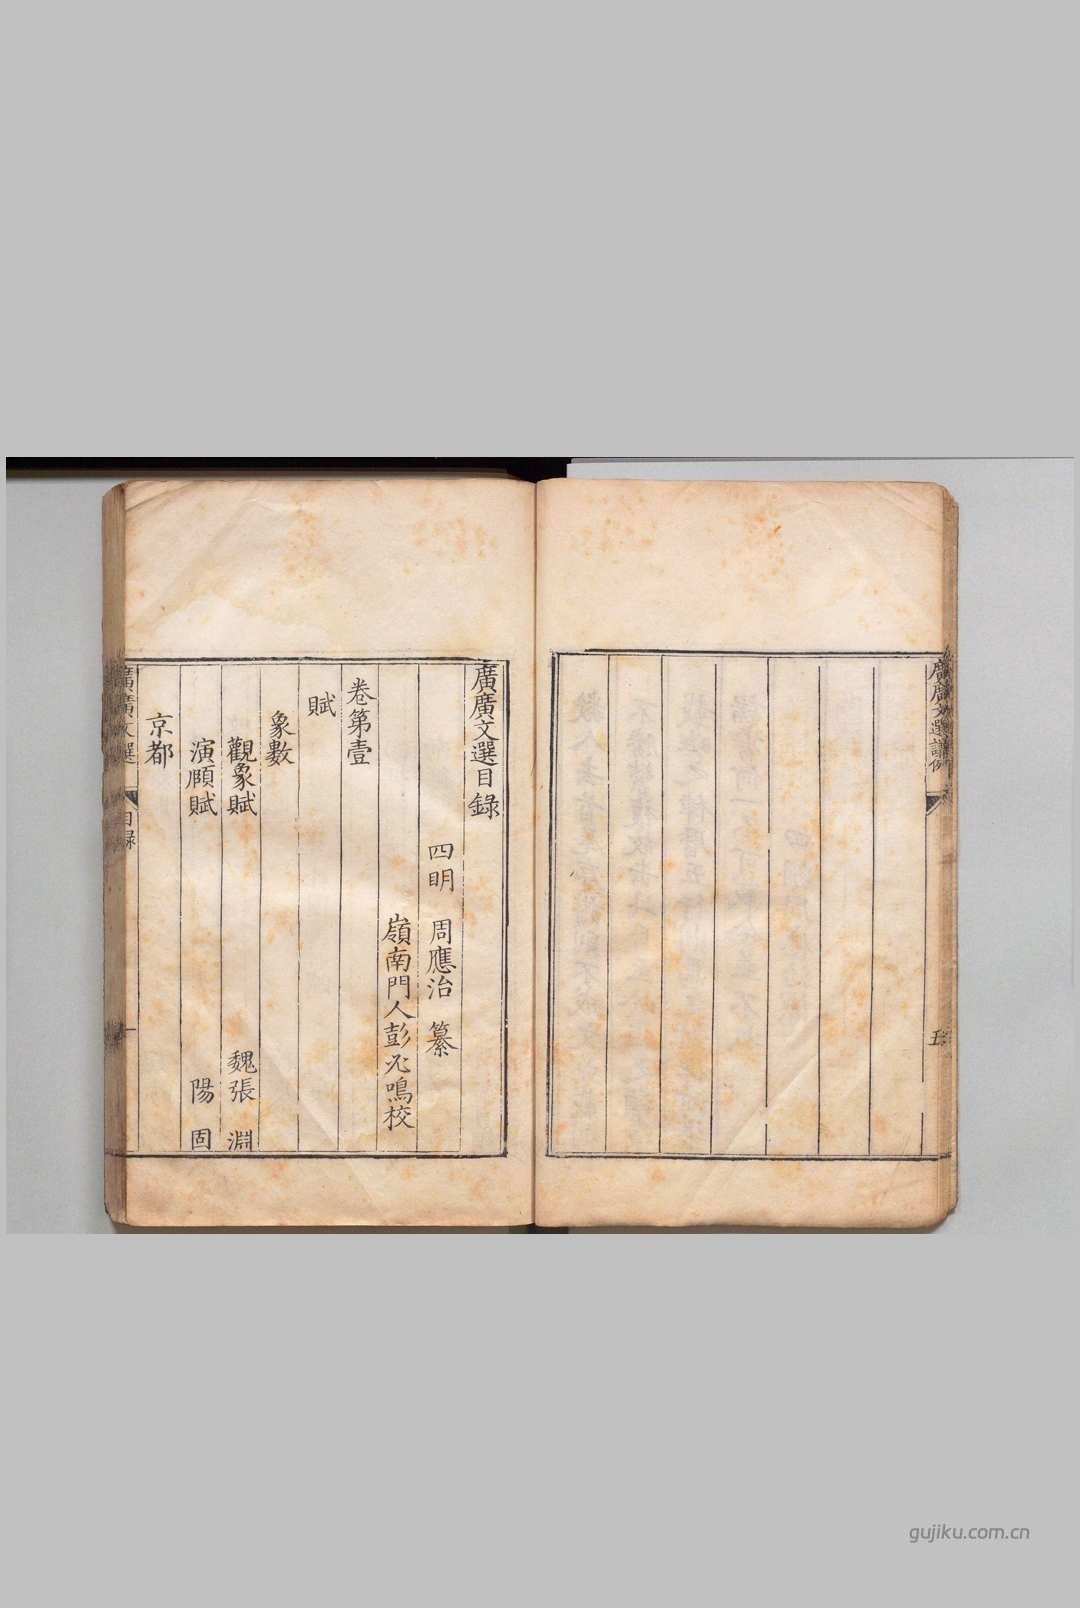 廣廣文選
五
廣廣文選目錄
四明 周應治 纂
嶺南門人彭 鳴校
卷第壹
賦
象數
觀象賦 魏張 淵
演賾賦 陽 固
京都
廣廣文選 目錄
gujiku.com.cn